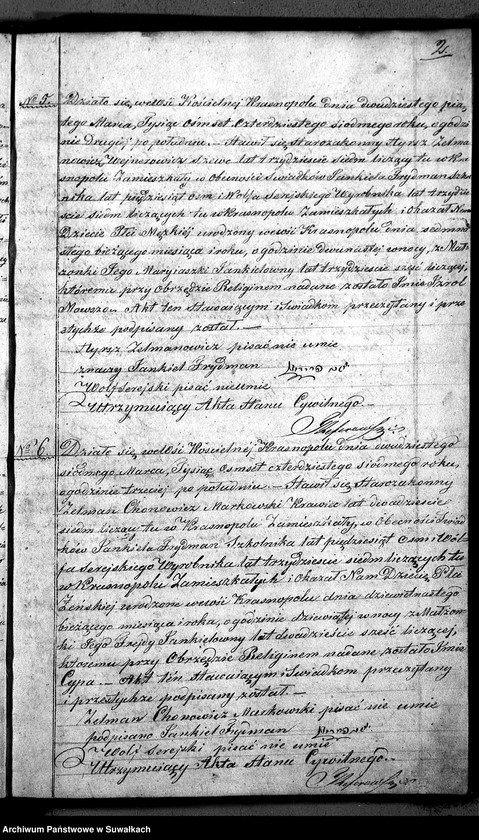 2
No 5.
Działo się wewsi Kościelnej Krasnopolu dnia dwudziestego pią-
tego Marca, Tysiąc osmset czterdziestego siodmego roku, o godzi-
nie drugiej po południu. – Stawił się starozakonny Hyrsz Zelma-
nowicz Wejnerowicz szewc lat trzydzieście siedm liczący tu w Kras-
nopolu zamieszkały w obecności Świadków Jankiela Frydman Szkol-
nika lat pięćdziesiąt osm i Wolfa Serejskiego Wyrobnika lat trzydzie-
ście siedm liczących tu w Krasnopolu Zamieszkałych i okazał Nam
Dziecie Płci Męzkiej urodzony wewsi Krasnopolu dnia
bieżącego miesiąca i roku, o godzinie dwunastej wnocy, z Mał-
żonki Jego Maryiaszki Jankielowny lat trzydzieście sześć liczącej,
któremu przy obrzędzie Religijnem nadane zostało Imie Izrol
Mowszo. – Akt ten Stawaiącym i Świadkom przeczytany i prze-
stychże podpisany został. –
Hyrsz Zelmanowicz pisać nie umie
znaczy Jankiel Frydman
Wolf Serejski pisać nieumie
Utrzymuiący Akta Stanu Cywilnego.
No 6.
Działo się wewsi Kościelnej Krasnopolu dnia dwudziestego
siódmego Marca, Tysiąc osmset czterdziestego siodmego roku,
o godzinie trzeciej po południu. – Stawił się Starozakonny
Zelman Chonowicz Markowski Krawiec lat dwadzieście
siedm liczący tu w Krasnopolu Zamieszkały, w Obecności Świad-
ków Jankiela Frydman Szkolnika lat pięćdziesiąt osm i Wol-
fa Serejskiego Wyrobnika lat trzydzieście siedm liczących tu
w Krasnopolu Zamieszkałych i okazał Nam Dziecię Płci
Żenskiej urodzone wewsi Krasnopolu dnia dziewiętnastego
bieżącego miesiąca i roku, o godzinie dziewiątej wnocy z Małżon-
ki Jego Frejdy Jankielowny lat dwadzieście sześć liczącej,
któremu przy Obrzędzie Religijnem nadane zostało Imie
Cypa. – Akt ten stawaiącym i Świadkom przeczytany
i przestychże podpisany został. –
Zelman Chonowicz Markowski pisać nie umie
podpisano Jankiel Frydman
Wolf Serejski pisać nie umie
Utrzymuiący Akta Stanu Cywilnego.
Archiwum Państwowe w Suwałkach